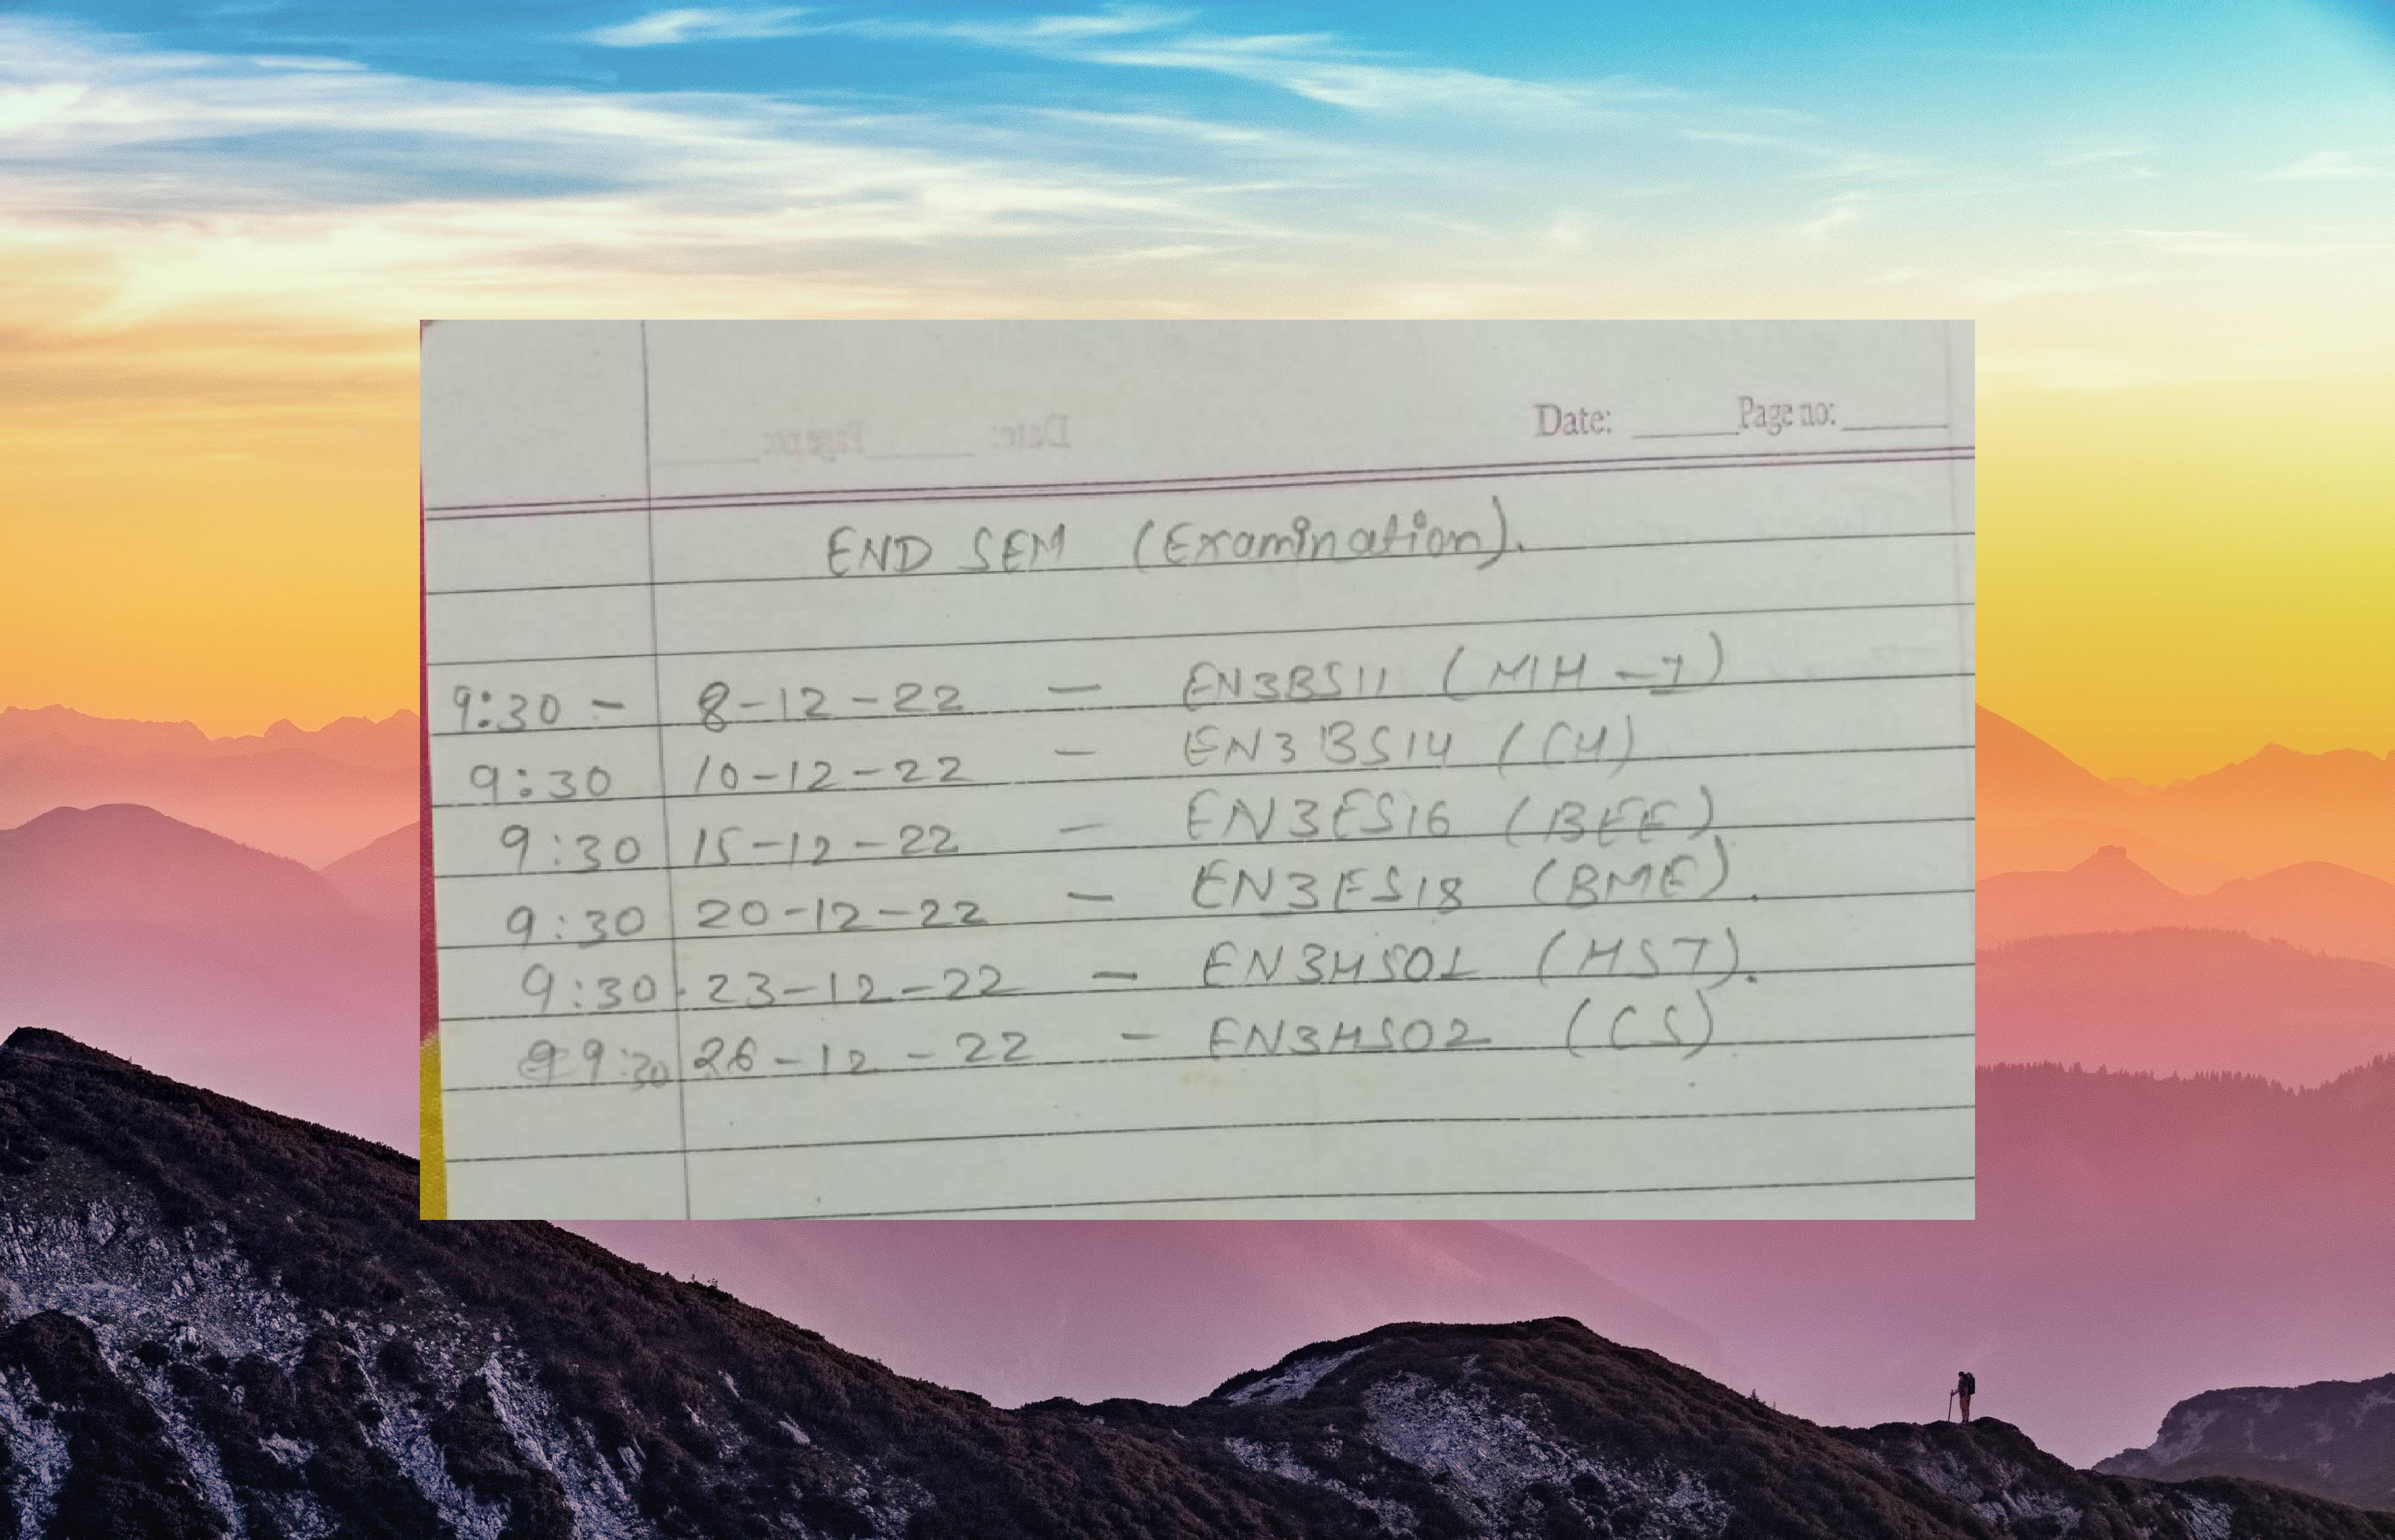 Date: ______ Page no: ______
END SEM (Examination).
9:30 - 8-12-22 - EN3BS11 (M1H-I)
9:30 10-12-22 - EN3BS14 (CH)
9:30 15-12-22 - EN3ES16 (BEE)
9:30 20-12-22 - EN3ES18 (BME).
9:30 23-12-22 - EN3HS01 (HST).
9:30 26-12-22 - EN3HS02 (CS)